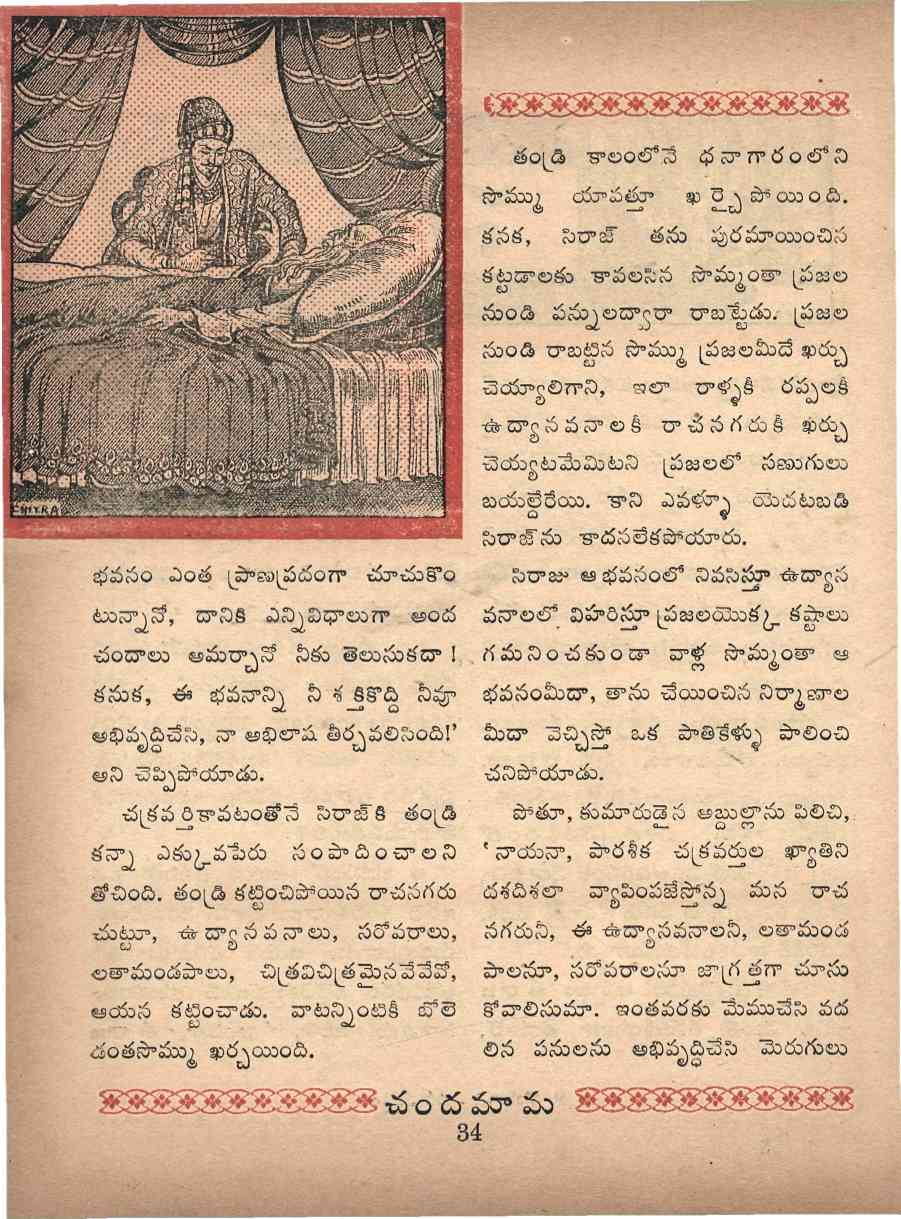 భవనం ఎంత ప్రాణప్రదంగా చూచుకొం
టున్నానో, దానికి ఎన్నివిధాలుగా అంద
చందాలు అమర్చానో నీకు తెలుసుకదా !
కనుక, ఈ భవనాన్ని నీ శక్తికొద్ది నీవూ
అభివృద్ధిచేసి, నా అభిలాష తీర్చవలిసింది!’
అని చెప్పిపోయాడు.
చక్రవర్తికావటంతోనే సిరాజ్‌కి తండ్రి
కన్నా ఎక్కువపేరు సంపాదించాలని
తోచింది. తండ్రి కట్టించిపోయిన రాచనగరు
చుట్టూ, ఉద్యానవనాలు, సరోవరాలు,
లతామండపాలు, చిత్రవిచిత్రమైనవేవేవో,
ఆయన కట్టించాడు. వాటన్నింటికీ బోలె
డంతసొమ్ము ఖర్చయింది.
తండ్రి కాలంలోనే ధనాగారంలోని
సొమ్ము యావత్తూ ఖర్చైపోయింది.
కనక, సిరాజ్ తను పురమాయించిన
కట్టడాలకు కావలసిన సొమ్మంతా ప్రజల
నుండి పన్నులద్వారా రాబట్టేడు. ప్రజల
నుండి రాబట్టిన సొమ్ము ప్రజలమీదే ఖర్చు
చెయ్యాలిగాని, ఇలా రాళ్ళకీ రప్పలకీ
ఉద్యానవనాలకీ రాచనగరుకీ ఖర్చు
చెయ్యటమేమిటని ప్రజలలో సణుగులు
బయల్దేరేయి. కాని ఎవళ్ళూ యెదటబడి
సిరాజ్‌ను కాదనలేకపోయారు.
సిరాజు ఆ భవనంలో నివసిస్తూ ఉద్యాన
వనాలలో విహరిస్తూ ప్రజలయొక్క కష్టాలు
గమనించకుండా వాళ్ల సొమ్మంతా ఆ
భవనంమీదా, తాను చేయించిన నిర్మాణాల
మీదా వెచ్చిస్తో ఒక పాతికేళ్ళు పాలించి
చనిపోయాడు.
పోతూ, కుమారుడైన అబ్దుల్లాను పిలిచి,
‘నాయనా, పారశీక చక్రవర్తుల ఖ్యాతిని
దశదిశలా వ్యాపింపజేస్తోన్న మన రాచ
నగరునీ, ఈ ఉద్యానవనాలనీ, లతామండ
పాలనూ, సరోవరాలనూ జాగ్రత్తగా చూసు
కోవాలిసుమా. ఇంతవరకు మేముచేసి వద
లిన పనులను అభివృద్ధిచేసి మెరుగులు
CHITRA
చందమామ
34